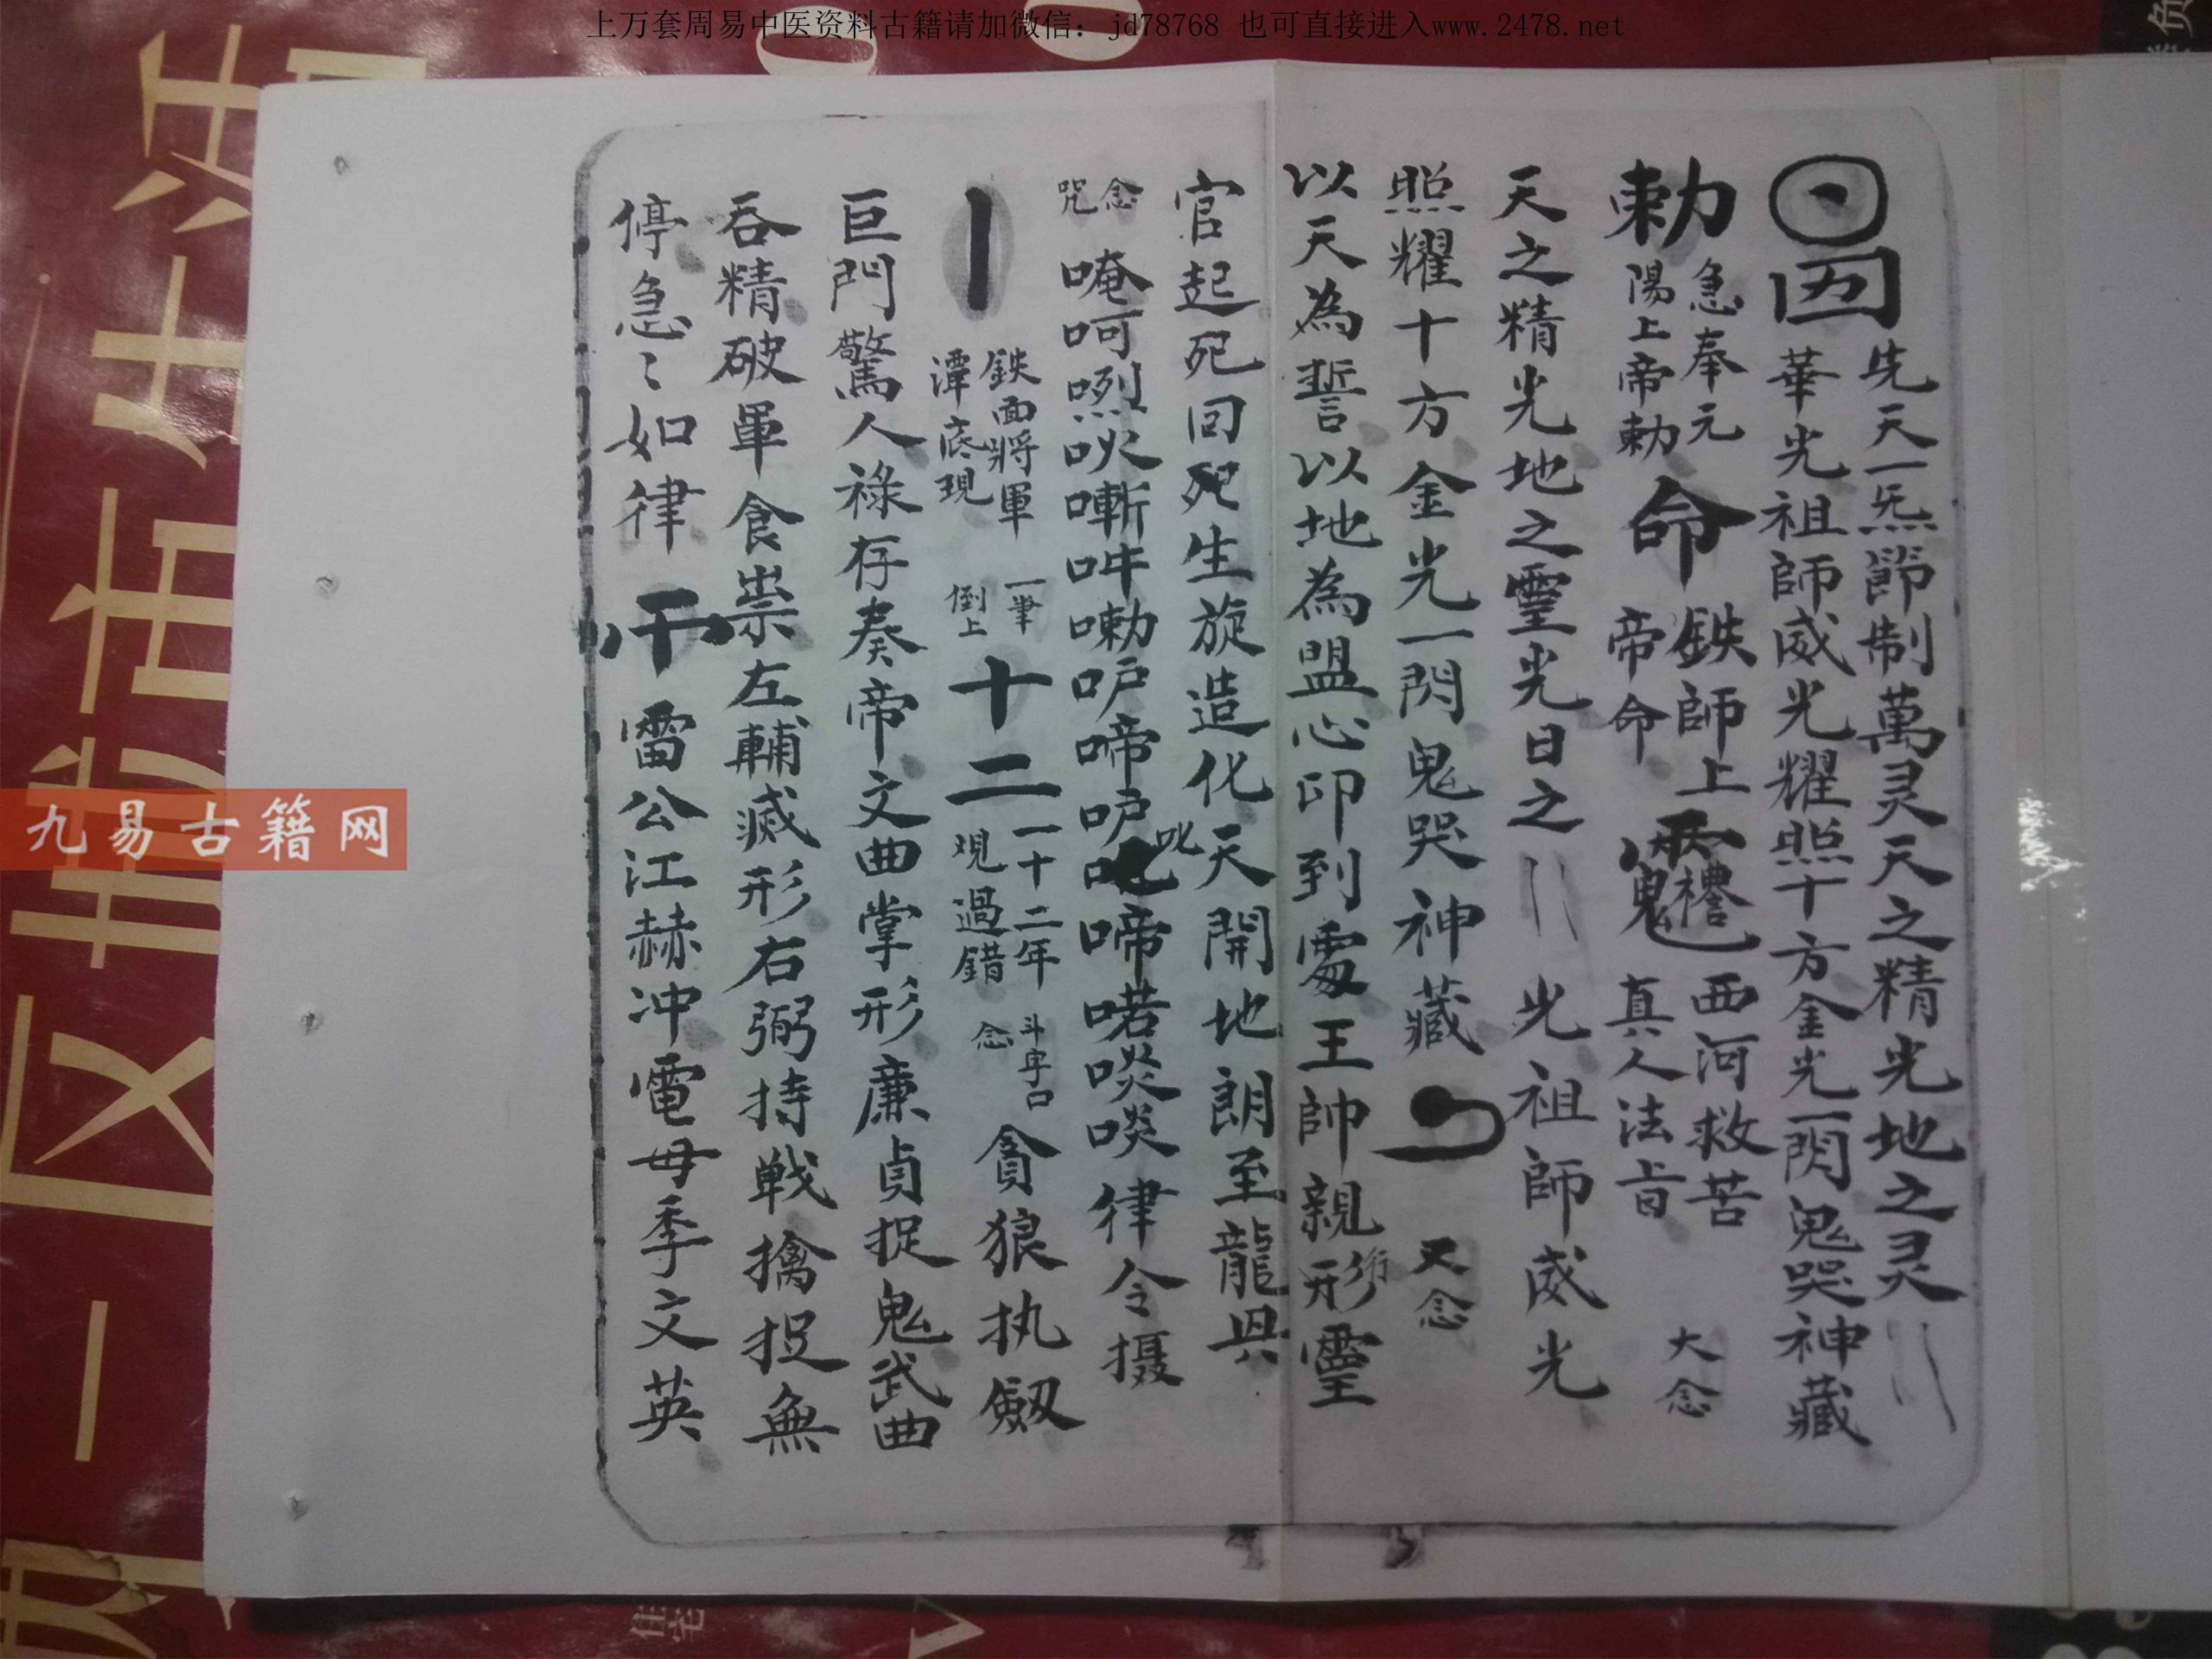 上万套周易中医资料古籍请加微信：jd78768 也可直接进入www.2478.net
九易古籍网
先天一炁節制萬灵天之精光地之灵
華光祖師威光耀照十方金光一閃鬼哭神藏
勅
急奉元
陽上帝勅
命
鉄師上
帝命
西河救苦
真人法旨
大念
天之精光地之靈光日之 光祖師威光
照耀十方金光一閃鬼哭神藏
又念
以天為誓以地為盟心印到處王帥親形靈
衍
官起死回死生旋造化天開地朗至龍興
念
咒
唵呵𠲖吙嘶吽嘞戶啼戶啼喏啖啖律令摄
吡
鉄面將軍
潭底現
一筆
倒上
十二
一十二年
观過錯
斗字口
念
貪狼执劔
巨門驚人祿存奏帝文曲掌形廉貞捉鬼武曲
吞精破軍食祟左輔滅形右弼持戰擒捉無
停急々如律
雷公江赫冲電母季文英